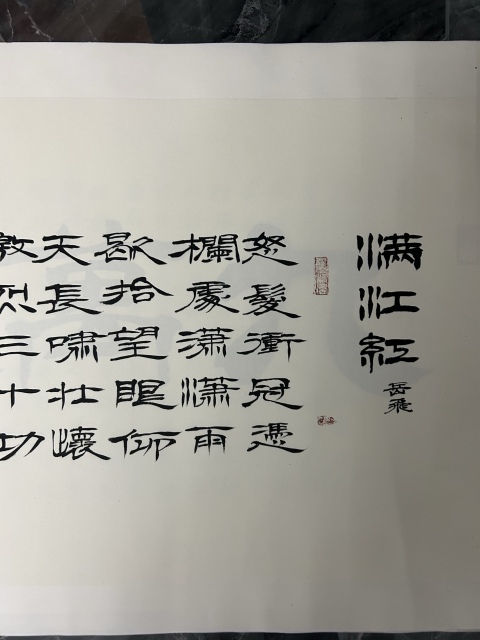 满江紅
岳飛
怒髮衝冠憑
欄處瀟瀟雨
歇抬望眼仰
天長嘯壯懷
激烈三十功